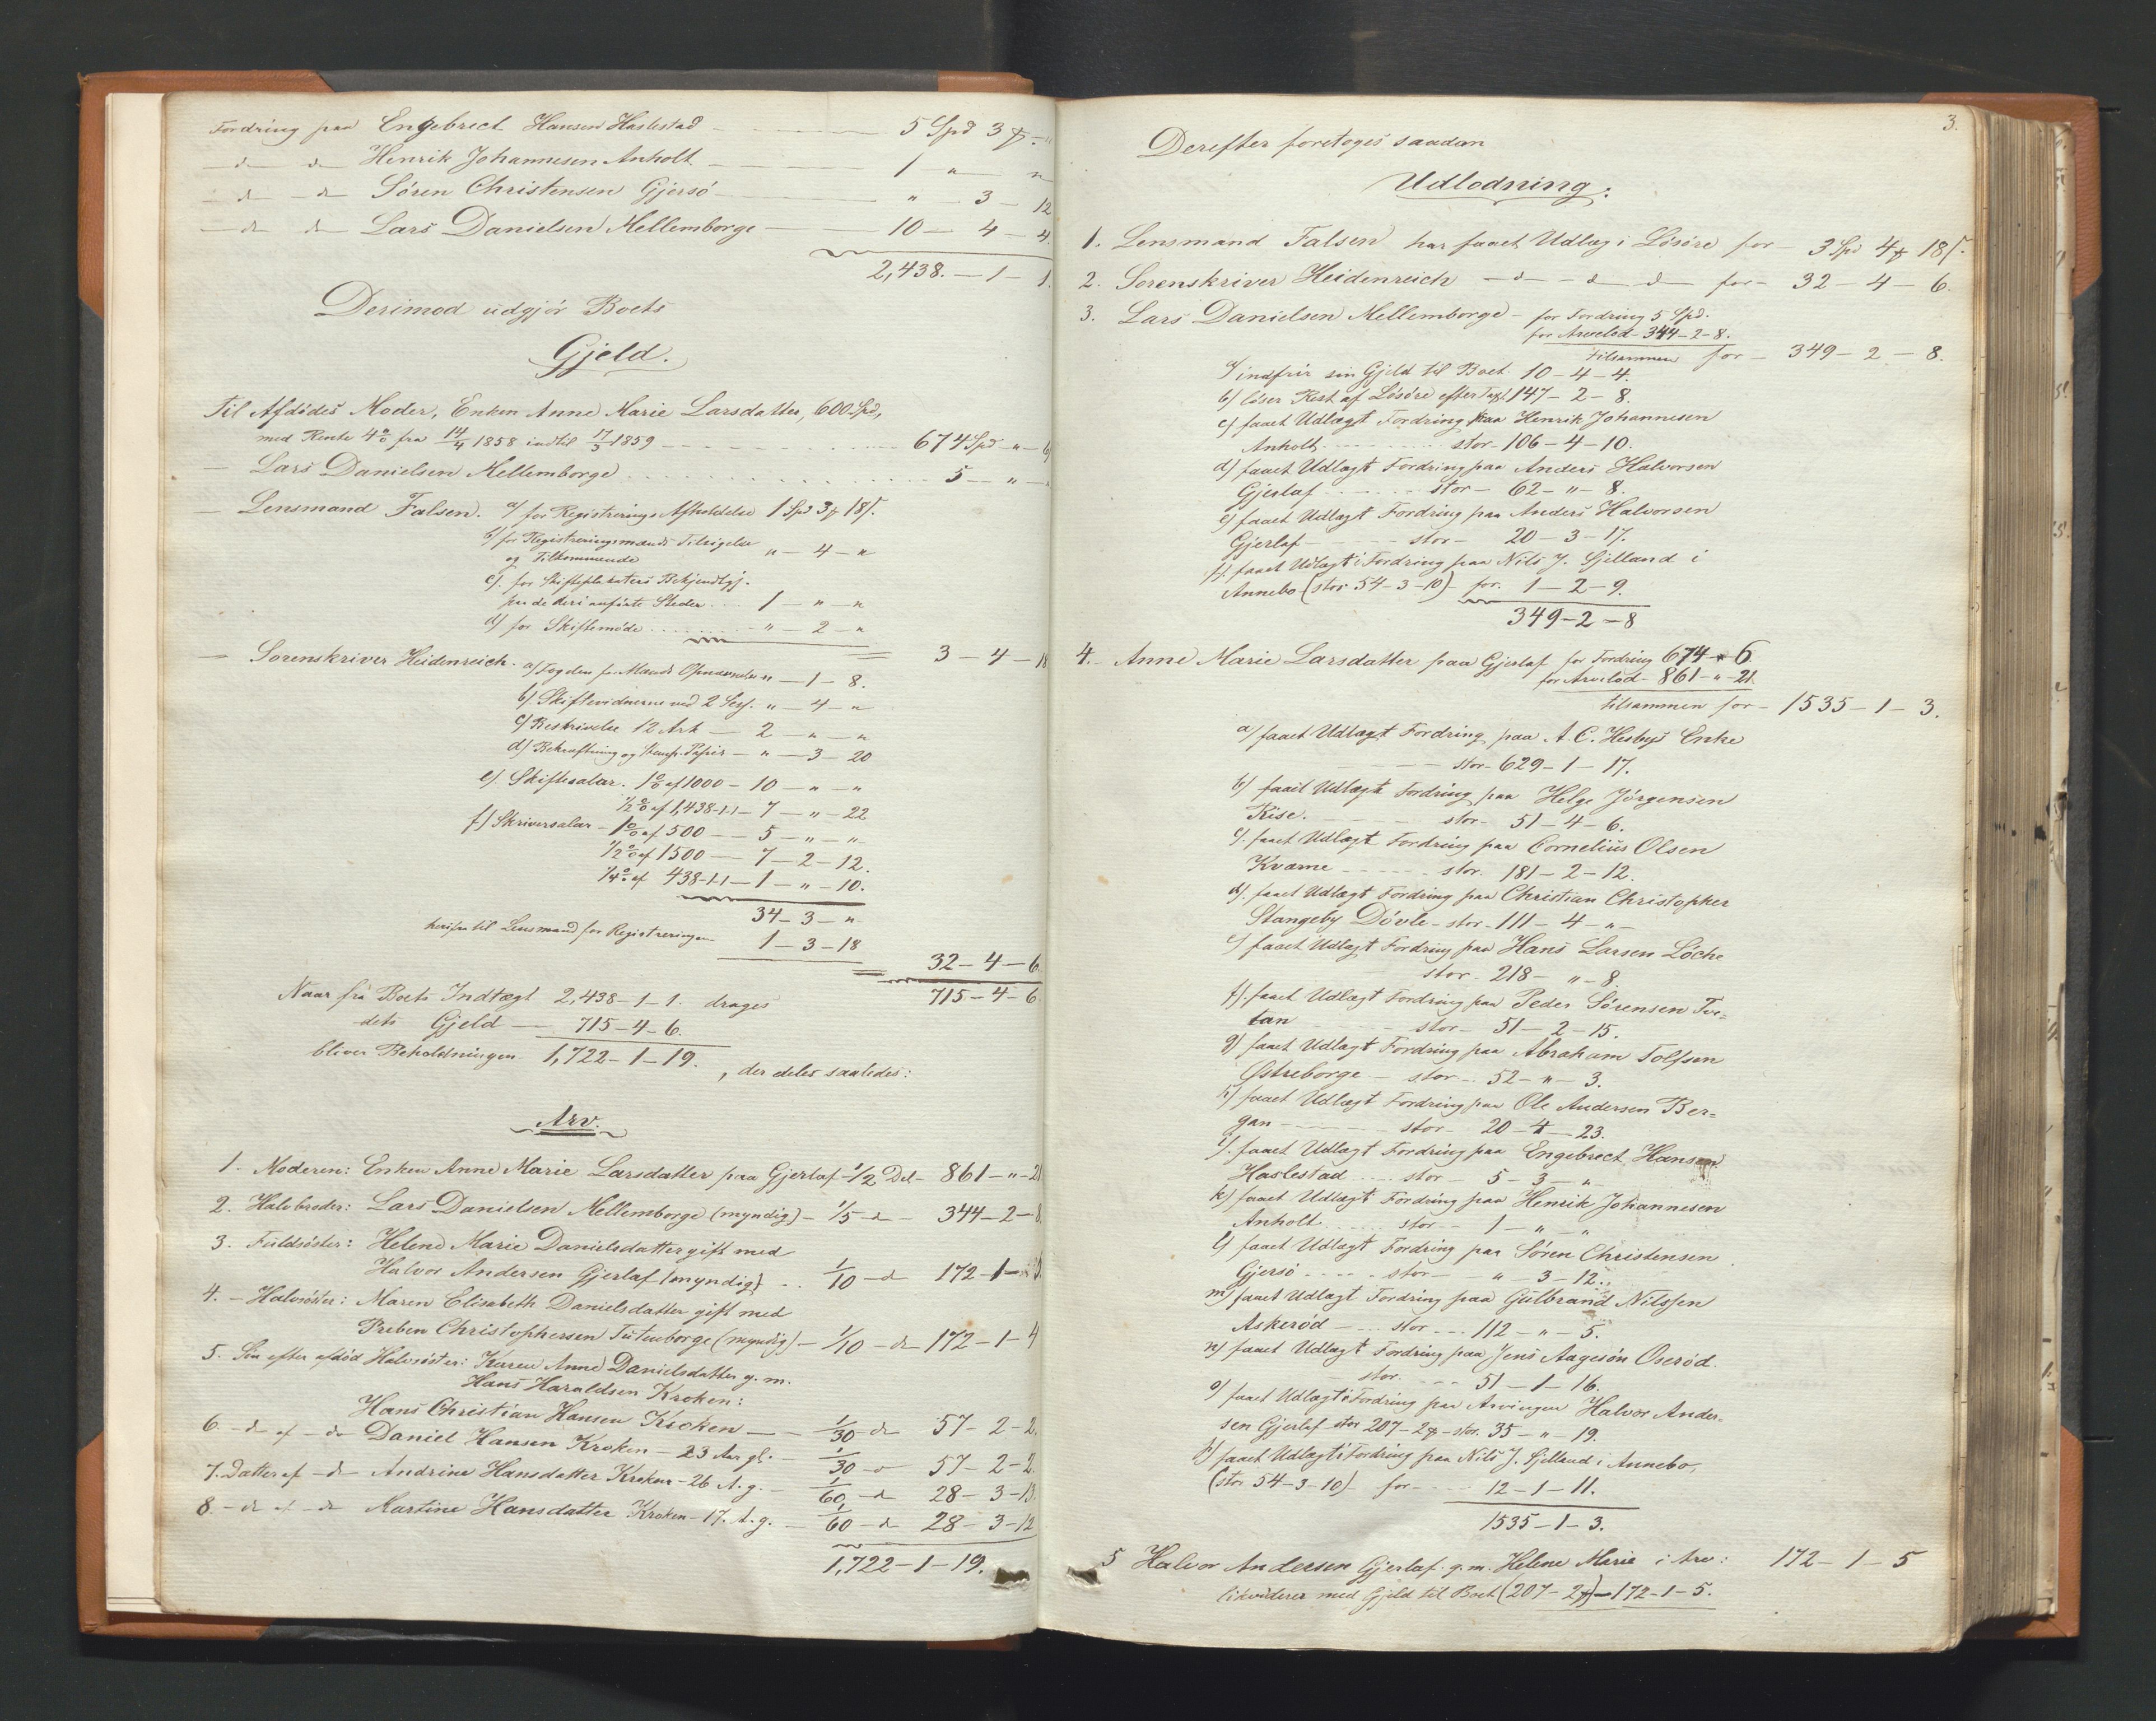 Fordring paa Engebrect Hansen Haslestad 5 Spd 3 ₰ - "
— d — d — Henrik Johannesen Anholt — 1 — " — "
— d — d — Søren Christensen Gjersø — " — 3 — 12
— d — d — Lars Danielsen Mellemborge — 10 — 4 — 4.
2,438. — 1 — 1.
Derimod udgjør Boets
Gjeld.
Til Afdødes Moder, Enken Anne Marie Larsdatter, 600 Spd,
med Rente 4% fra 14/4 1858 indtil 17/5 1859 — 674 Spd — " — 6
— Lars Danielsen Mellemborge . . . . 5 — " — "
— Lensmand Falsen. a) for Registrerings Afholdelse 1 Spd 3 ₰ 18 ʃ.
b) for Registreringsmænds Tilsigelse
og Tilkommende " — 4 — "
c). for Skifteplakaters Bekjendtgj.
paa de deri anførte Steder . . . 1 — " — "
d) for Skiftemøde . . . . " — 2 — "
3 — 4 — 18
— Sorenskriver Heidenreich. a) Fogden for Mænds Opnævnelse " — 1 — 8.
b) Skiftevidnerne ved 2 Sess. " — 4 — "
c) Beskrivelse 12 Ark — 2 — " — "
d) Bekræftning og Stemp. Papir — " — 3 — 20
e). Skiftesalar. 1% af 1000 — 10 — " — "
1/2% af 1,438-1-1 — 7 — " — 22
f) Skriversalar — 1% af 500 — 5 — " — "
1/2% af 1500 — 7 — 2 — 12.
1/4% af 438-1-1 — 1 — " — 10.
34 — 3 — "
herifra til Lensmand for Registreringen 1 — 3 — 18
32 — 4 — 6
715 — 4 — 6.
Naar fra Boets Indtægt 2,438 — 1 — 1. drages
dets Gjeld — 715 — 4 — 6.
bliver Beholdningen 1,722 — 1 — 19. , der deles saaledes:
Arv.
1. Moderen: Enken Anne Marie Larsdatter paa Gjerlaf — 1/2 Del — 861 — " — 21
2. Halvbroder: Lars Danielsen Mellemborge (myndig) — 1/5 — d — 344 — 2 — 8.
3. Fuldsøster: Helene Marie Danielsdatter gift med
Halvor Andersen Gjerlaf (myndig) . . 1/10 — d 172 — 1 — 5.
4. — Halvsøster: Maren Elisabeth Danielsdatter gift med
Preben Christophersen Tutenborge (myndig) — 1/10 — d — 172 — 1 — 4
5. Søn efter afdød Halvsøster: Karen Anne Danielsdatter g. m.
Hans Haraldsen Kroken:
Hans Christian Hansen Kroken — 1/30 — d 57 — 2 — 2.
6. — d — af — d — Daniel Hansen Kroken — 23 Aar gl. — 1/30 — d 57 — 2 — 2.
7. Datter af — d — Andrine Hansdatter Kroken — 26 A. g. — 1/60 — d 28 — 3 — 13.
8 — d — af — d — Martine Hansdatter Kroken — 17 A. g. — 1/60 — d 28 — 3 — 12
1,722 — 1 — 19.
3.
Derefter foretoges saadan
Udlodning:
1. Lensmand Falsen har faaet Udlæg i Løsøre for — 3 Spd 4 ₰ 18 ʃ.
2. Sorenskriver Heidenreich — d — d — d — for — 32 — 4 — 6.
3. Lars Danielsen Mellemborge — for Fordring 5 Spd.
for Arvelod — 344 — 2 — 8.
tilsammen for — 349 — 2 — 8.
a) indfrir sin Gjeld til Boet 10 — 4 — 4.
b) løser Rest af Løsøre efter Taxt 147 — 2 — 8.
c) faaet Udlægt Fordring paa Henrik Johannesen
Anholt stor — 106 — 4 — 10.
d) faaet Udlægt Fordring paa Anders Halvorsen
Gjerlaf stor — 62 — " — 8.
e) faaet Udlægt Fordring paa Anders Halvorsen
Gjerlaf stor — 20 — 3 — 17.
f). faaet Udlægt i Fordring paa Nils J. Gjelland i
Annebo (stor 54 — 3 — 10) for. 1 — 2 — 9.
349 — 2 — 8
4. — Anne Marie Larsdatter paa Gjerlaf for Fordring 674 " 6
for Arvelod — 861 — " — 21
tilsammen for — 1535 — 1 — 3.
a) faaet Udlægt Fordring paa A. C. Hesbys Enke
stor — 629 — 1 — 17.
b) faaet Udlægt Fordring paa Helge Jørgensen
Rise. stor — 51 — 4 — 6.
c). faaet Udlægt Fordring paa Cornelius Olsen
Kværne stor. 181 — 2 — 12.
d). faaet Udlægt Fordring paa Christian Christopher
Stangeby Døvle — stor — 111 — 4 — " —
e) faaet Udlægt Fordring paa Hans Larsen Løche
stor. 218 — " — 8.
f). faaet Udlægt Fordring paa Peder Sørensen Tor=
tan stor — 51 — 2 — 15.
g) faaet Udlægt Fordring paa Abraham Tolfsen
Østreborge — stor — 52 — " — 3.
h) faaet Udlægt Fordring paa Ole Andersen Ber=
gan stor — 20 — 4 — 23.
i). faaet Udlægt Fordring paa Engebrect Hansen
Haslestad stor — 5 — 3 — "
k) faaet Udlægt Fordring paa Henrik Johannesen
Anholt stor — 1 — " "
l) faaet Udlægt Fordring paa Søren Christensen
Gjersø stor — " — 3 — 12.
m) faaet Udlægt Fordring paa Gulbrand Nilssen
Askerød stor — 112 — " — 5.
n) faaet Udlægt Fordring paa Jens Aagesøn Oserød.
stor. 51 — 1 — 16.
o) faaet Udlægt i Fordring paa Arvingen Halvor Ander=
sen Gjerlaf stor 207 — 2 ₰ — stor. 35 — " — 19.
p) faaet Udlægt i Fordring paa Nils J. Gjelland i Annebo,
(stor 54 — 3 — 10) for — 12 — 1 — 11.
1535 — 1 — 3.
5 Halvor Andersen Gjerlaf g. m. Helene Marie i Arv: 172 — 1 — 5
likviderer med Gjeld til Boet (207 — 2 ₰) — 172 — 1 — 5.